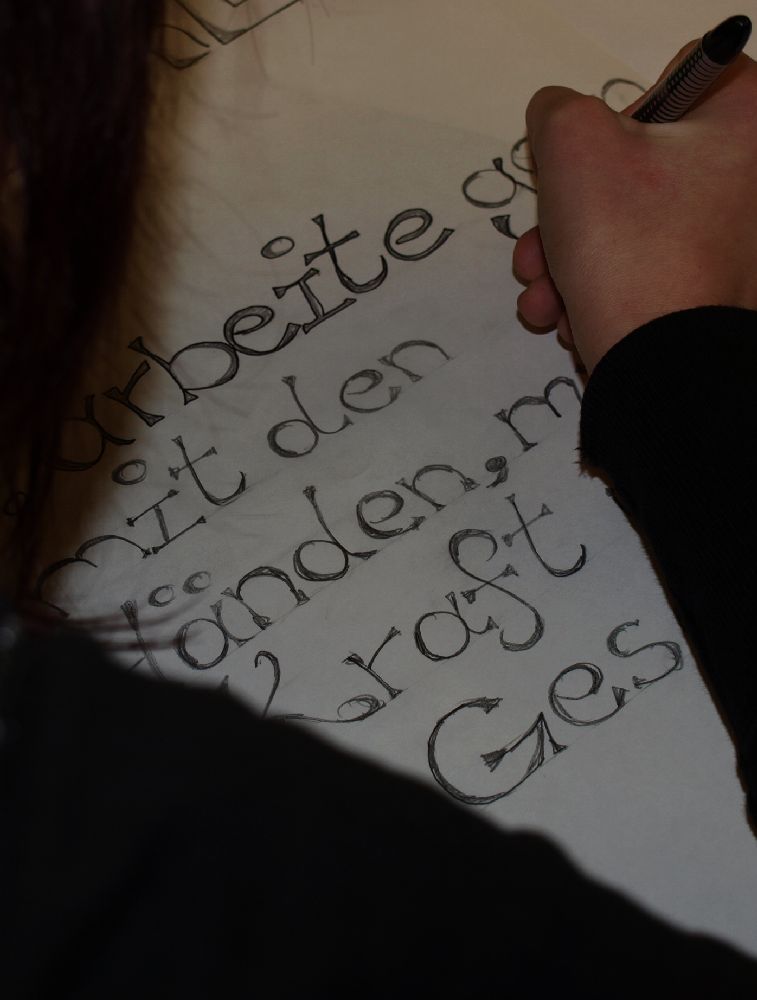 arbeite ge
mit den
Händen, m
Kraft
Ges